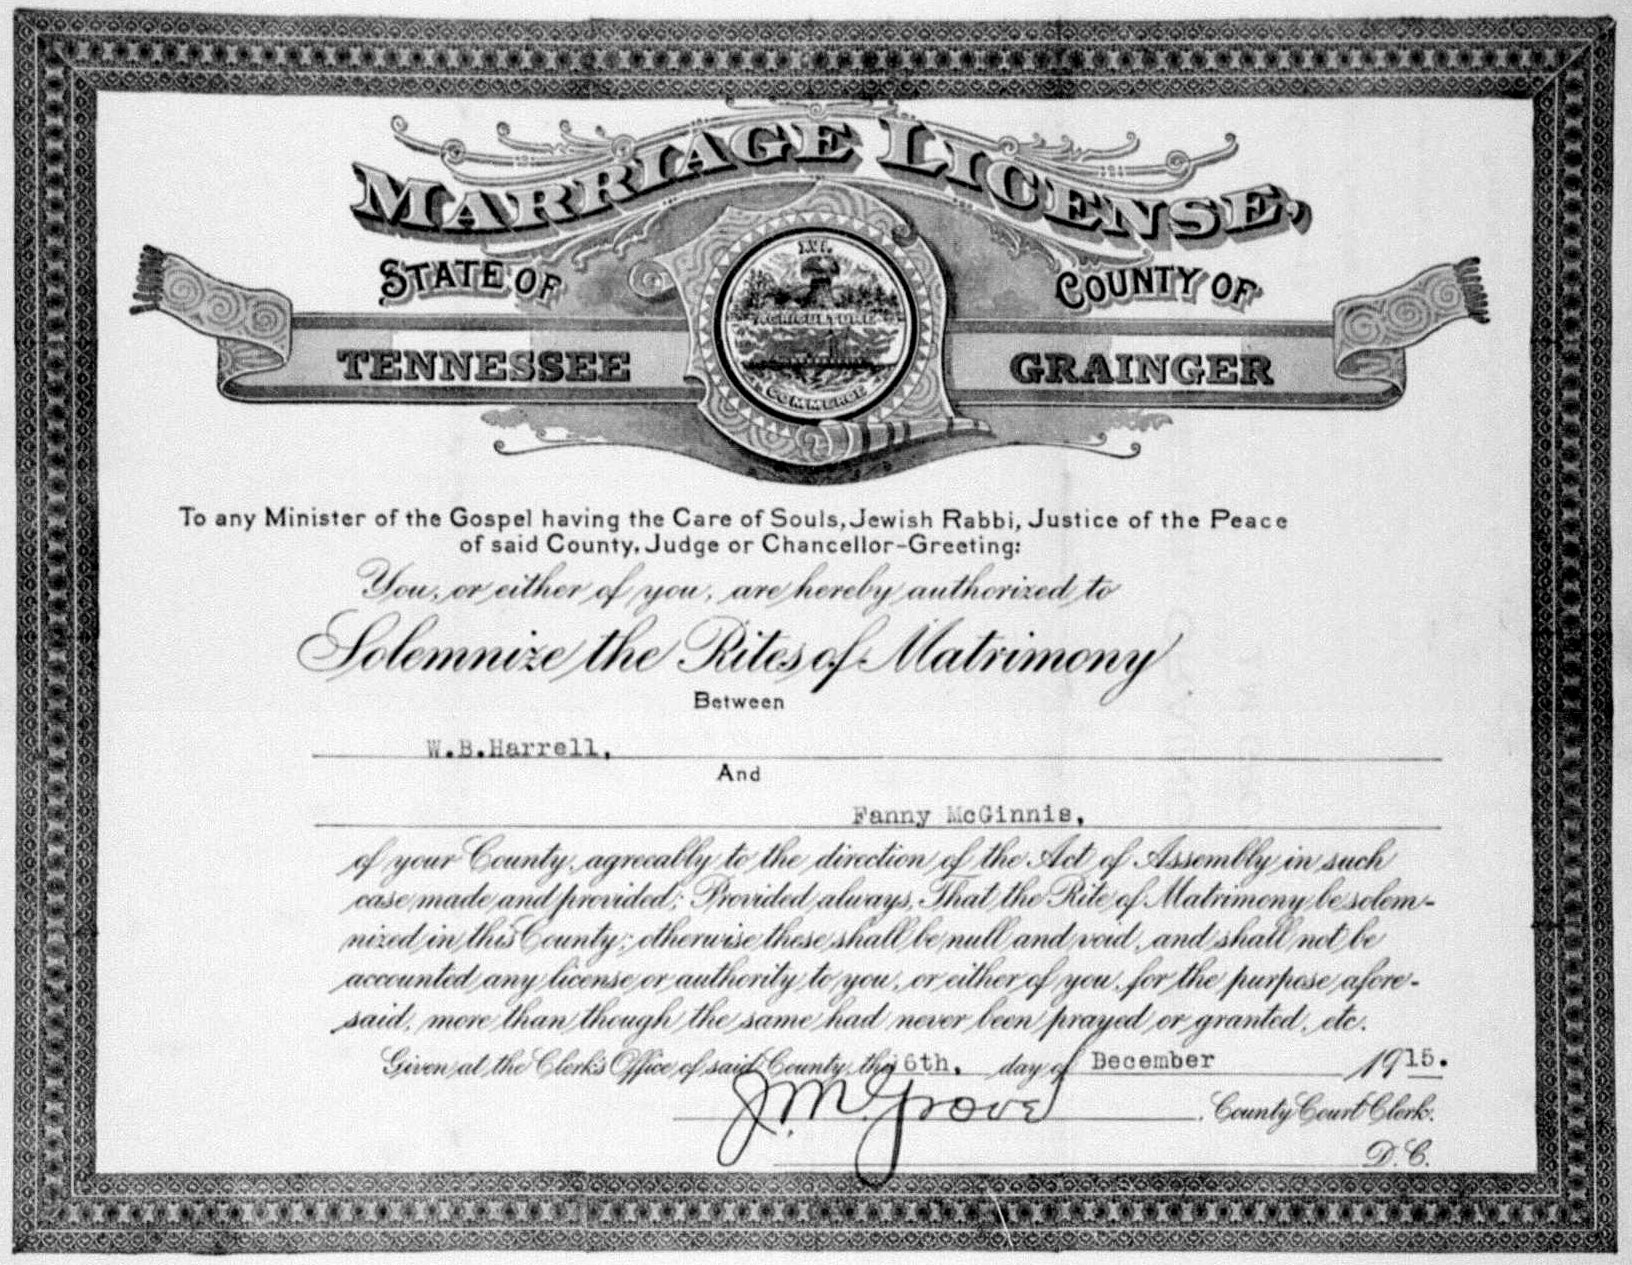 MARRIAGE LICENSE,
STATE OF
COUNTY OF
XVI.
AGRICULTURE
COMMERCE
TENNESSEE
GRAINGER
To any Minister of the Gospel having the Care of Souls, Jewish Rabbi, Justice of the Peace
of said County, Judge or Chancellor-Greeting:
You, or either of you, are hereby authorized to
Solemnize the Rites of Matrimony
Between
W.B.Harrell,
And
Fanny McGinnis,
of your County, agreeably to the direction of the Act of Assembly in such
case made and provided; Provided always, That the Rite of Matrimony be solem-
nized in this County; otherwise these shall be null and void, and shall not be
accounted any license or authority to you, or either of you, for the purpose afore-
said, more than though the same had never been prayed or granted, etc.
Given at the Clerk's Office of said County, the 6th. day of December 1915.
J.M. Grove County Court Clerk.
D. C.